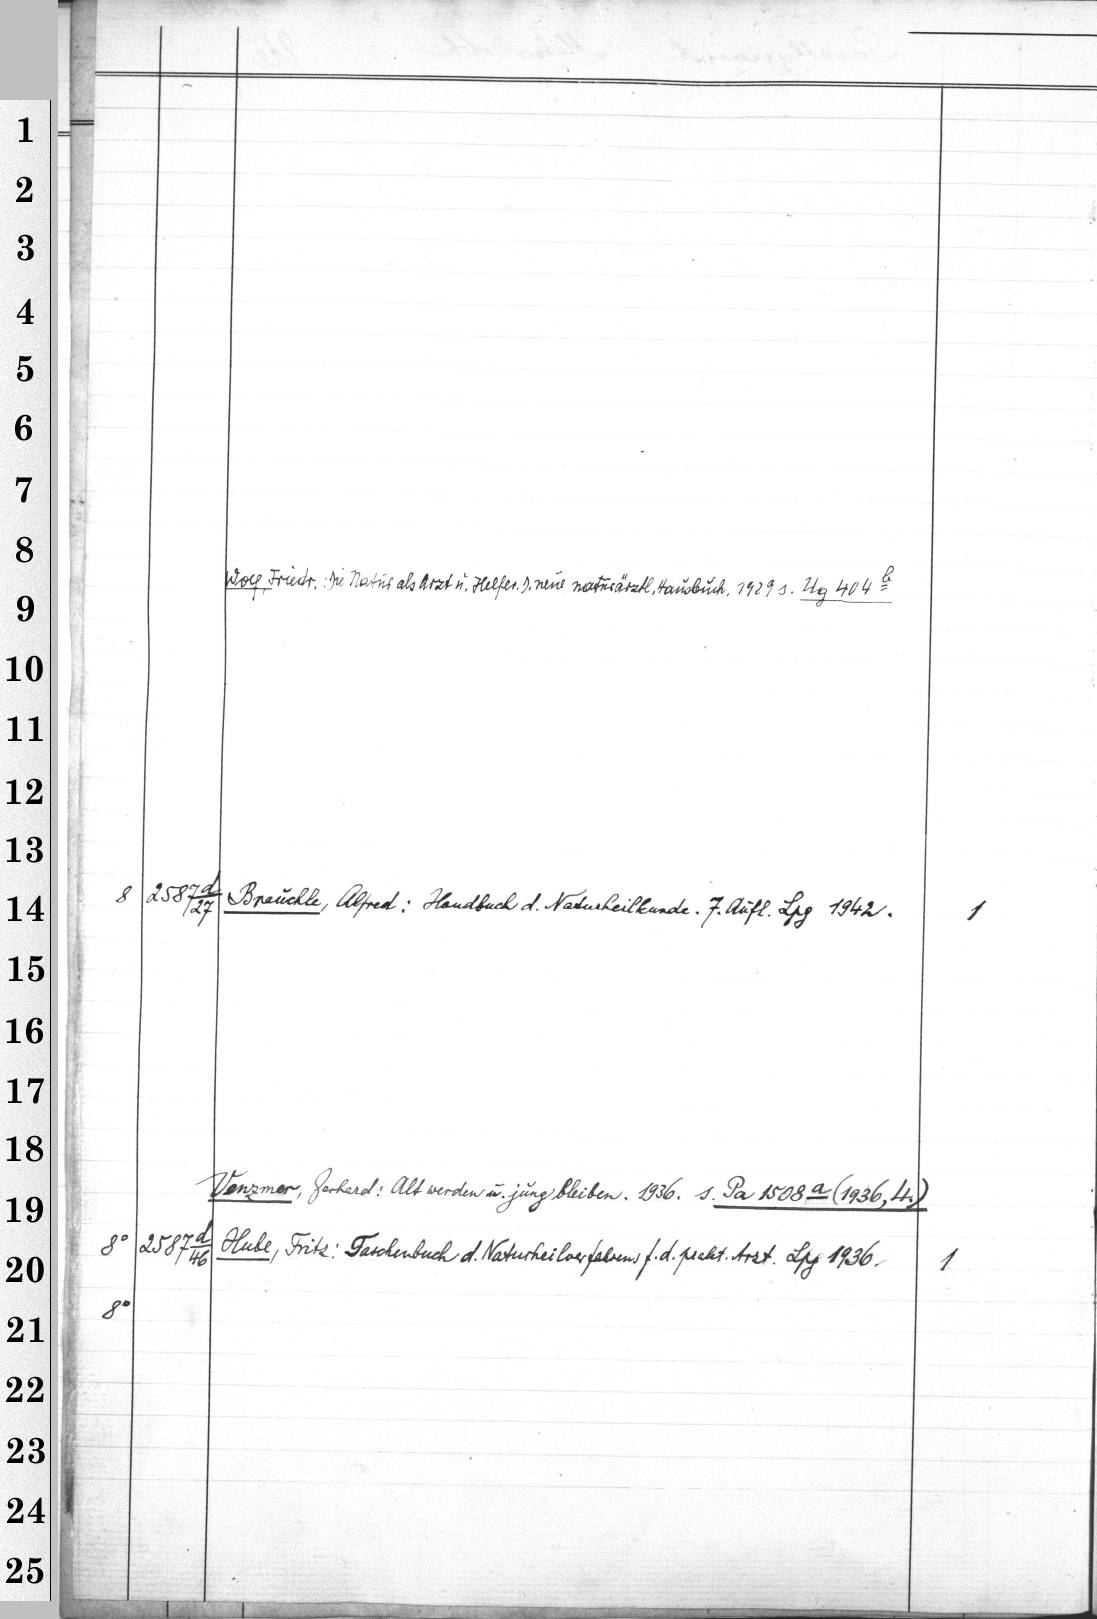 1
2
3
4
5
6
7
8
Wolf, Friedr.: Die Natur als Arzt u. Helfer. D. neue naturärztl. Hausbuch. 1929 s. Ug 404 b
9
10
11
12
13
8 2587 d/27 Brauchle, Alfred: Handbuch d. Naturheilkunde. 7. Aufl. Lpg 1942. 1
14
15
16
17
18
Venzmer, Gerhard: Alt werden u. jung bleiben. 1936. s. Pa 1508 a (1936, 4.)
19
8° 2587 d/46 Hube, Fritz: Taschenbuch d. Naturheilverfahrens f. d. prakt. Arzt. Lpg 1936. 1
20
8°
21
22
23
24
25